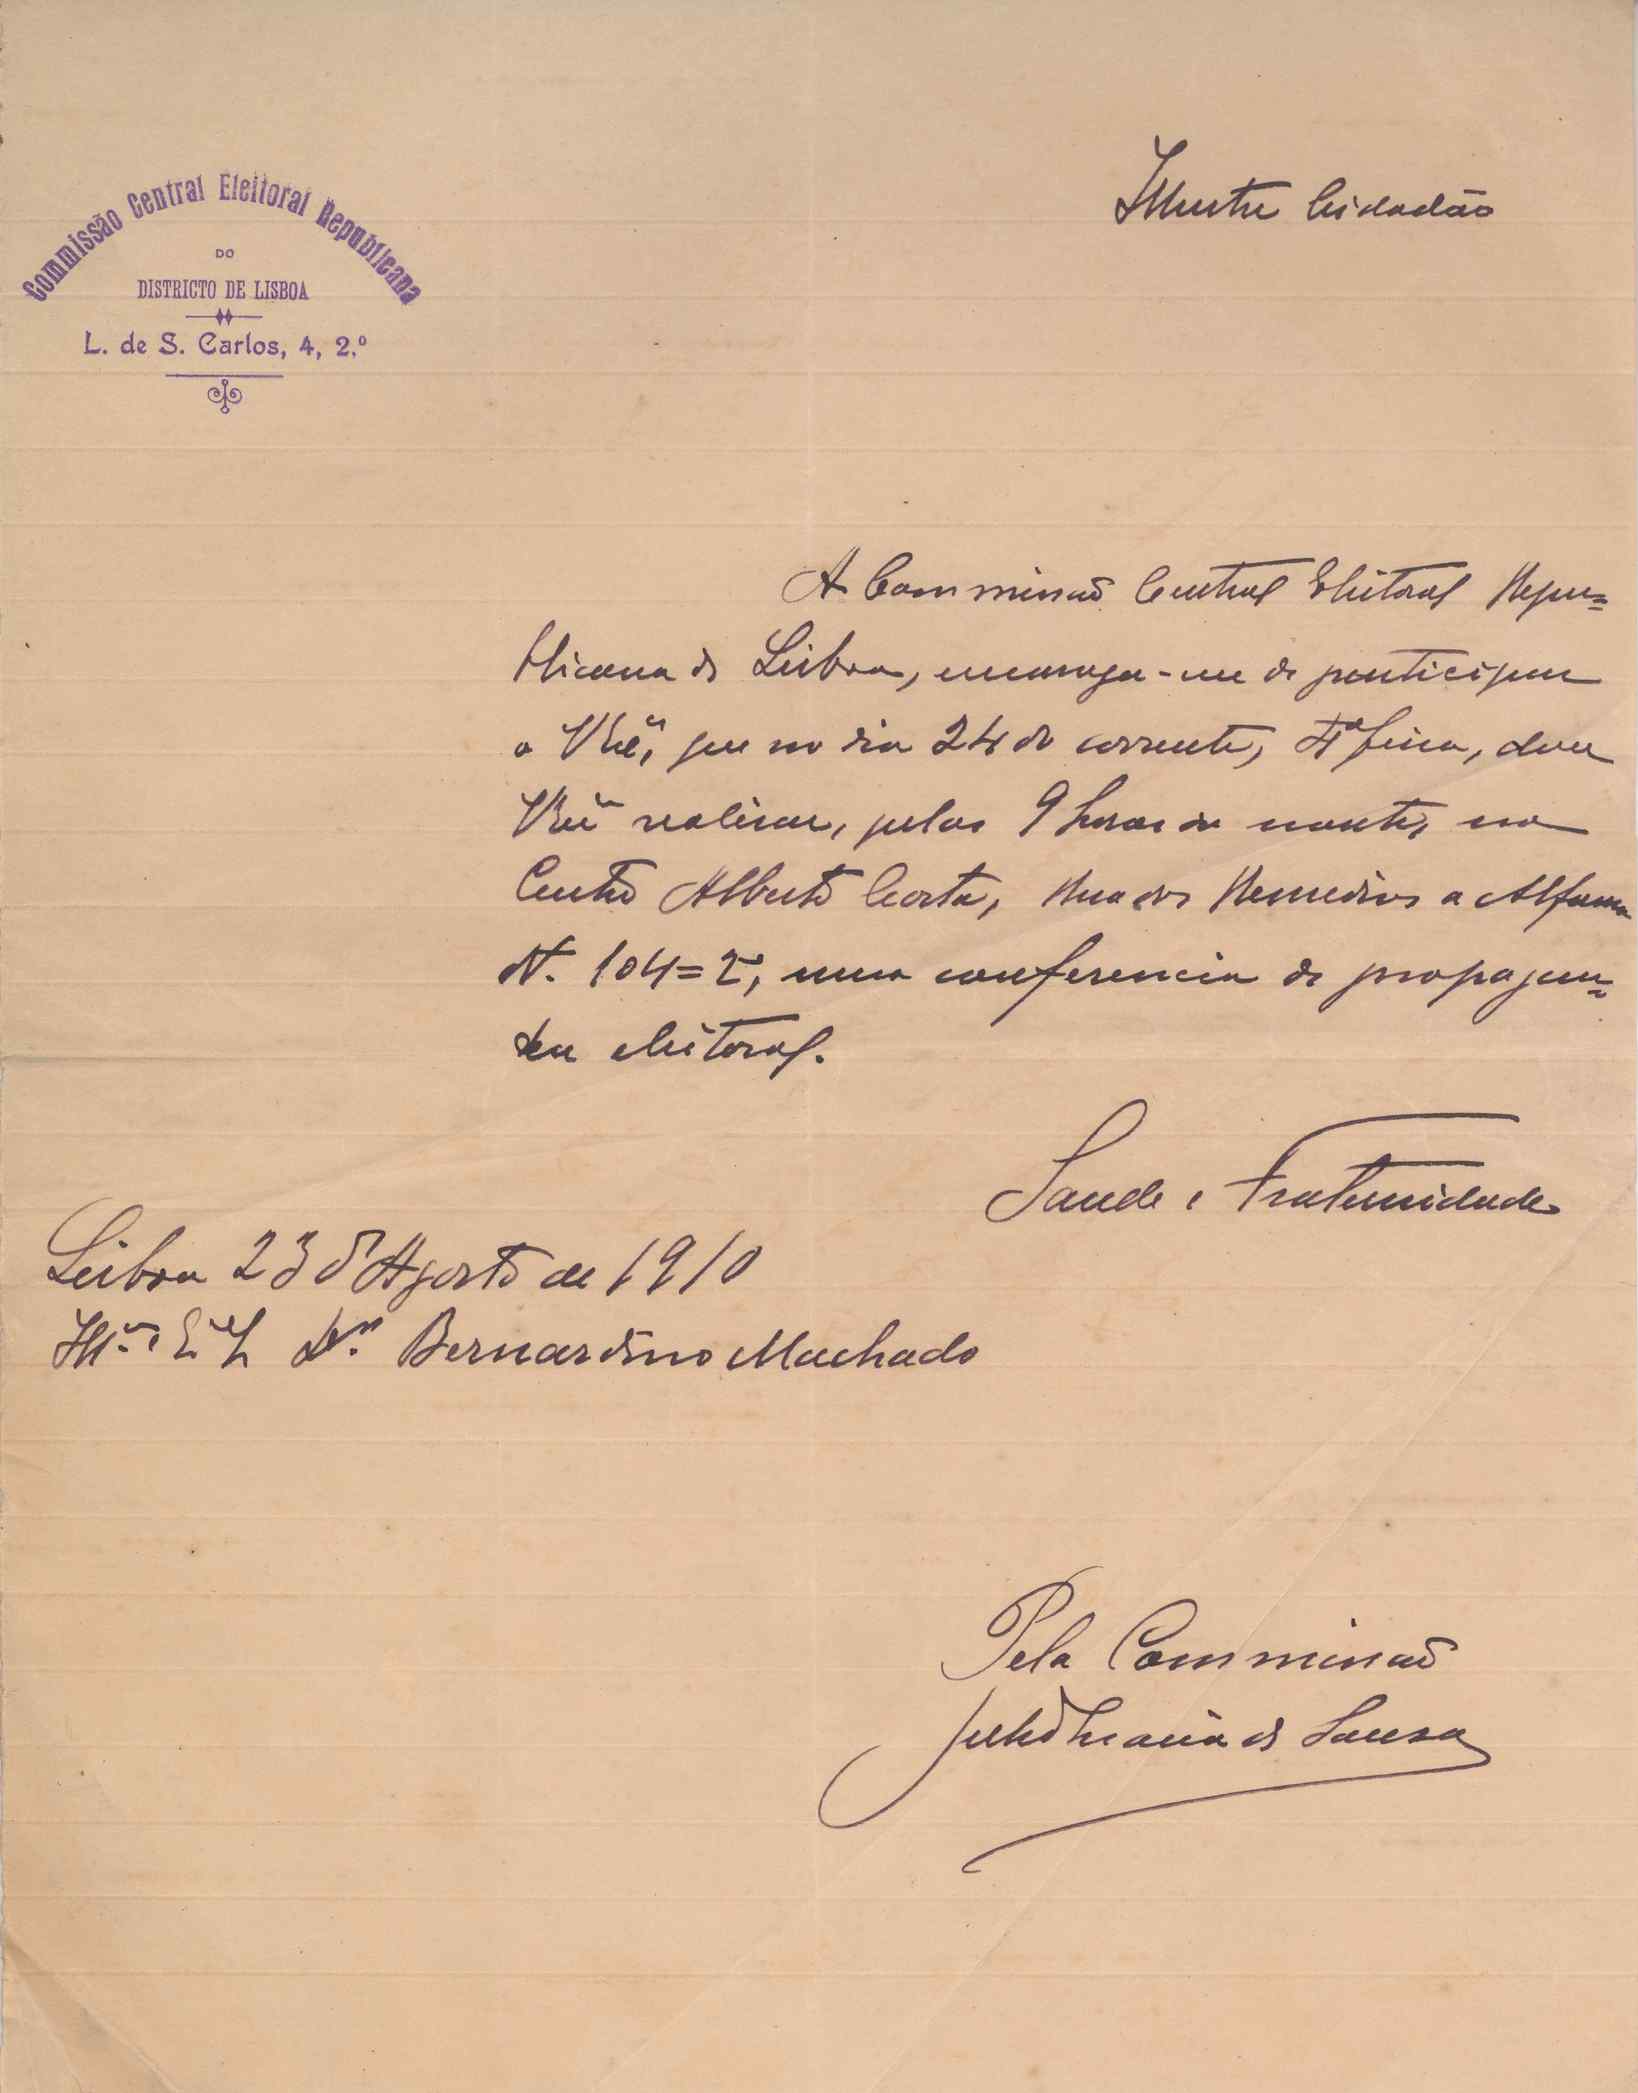 Commissão Central Eleitoral Republicana
DO
DISTRICTO DE LISBOA
L. de S. Carlos, 4, 2.º
Illustre Cidadão
A Commissão Central Eleitoral Repu=
blicana de Lisboa, encarrega-me de participar
a V. Ex.ª, que no dia 24 do corrente, 4ª feira, deve
V. Ex.ª realisar, pelas 9 horas da noute, no
Centro Alberto Costa, Rua dos Remedios a Alfama
N. 104=2º, uma conferencia de propagan=
da eleitoral.
Saude e Fraternidade
Lisboa 23 d'Agosto de 1910
Ill.mo e Ex.mo Dr. Bernardino Machado
Pela Commissão
Julio Maria de Sousa